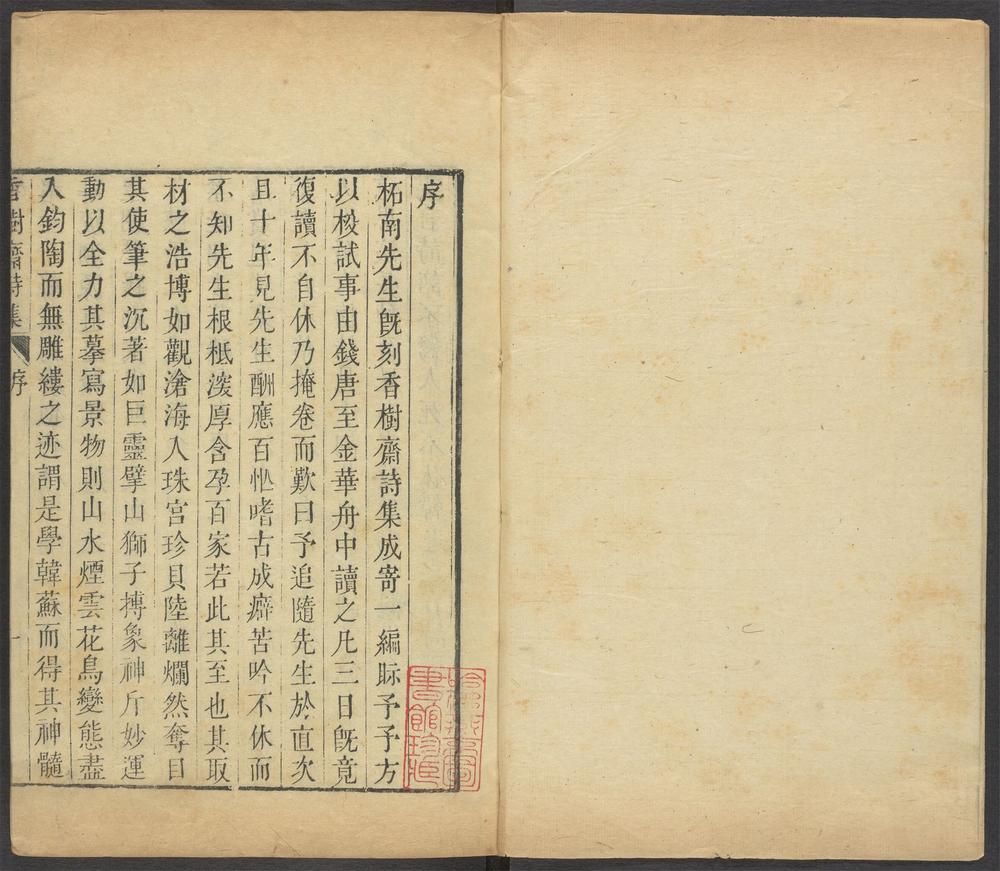 序
柘南先生旣刻香樹齋詩集成寄一編眎予予方
以校試事由錢唐至金華舟中讀之凡三日旣竟
復讀不自休乃掩卷而歎曰予追隨先生於直次
且十年見先生酬應百忙嗜古成癖苦吟不休而
不知先生根柢深厚含孕百家若此其至也其取
材之浩博如觀滄海入珠宮珍貝陸離爛然奪目
其使筆之沉著如巨靈擘山獅子搏象神斤妙運
動以全力其摹寫景物則山水煙雲花鳥變態盡
入鈞陶而無雕縷之迹謂是學韓蘇而得其神髓
香樹齋詩集 序 一
哈佛燕京圖書館珍藏